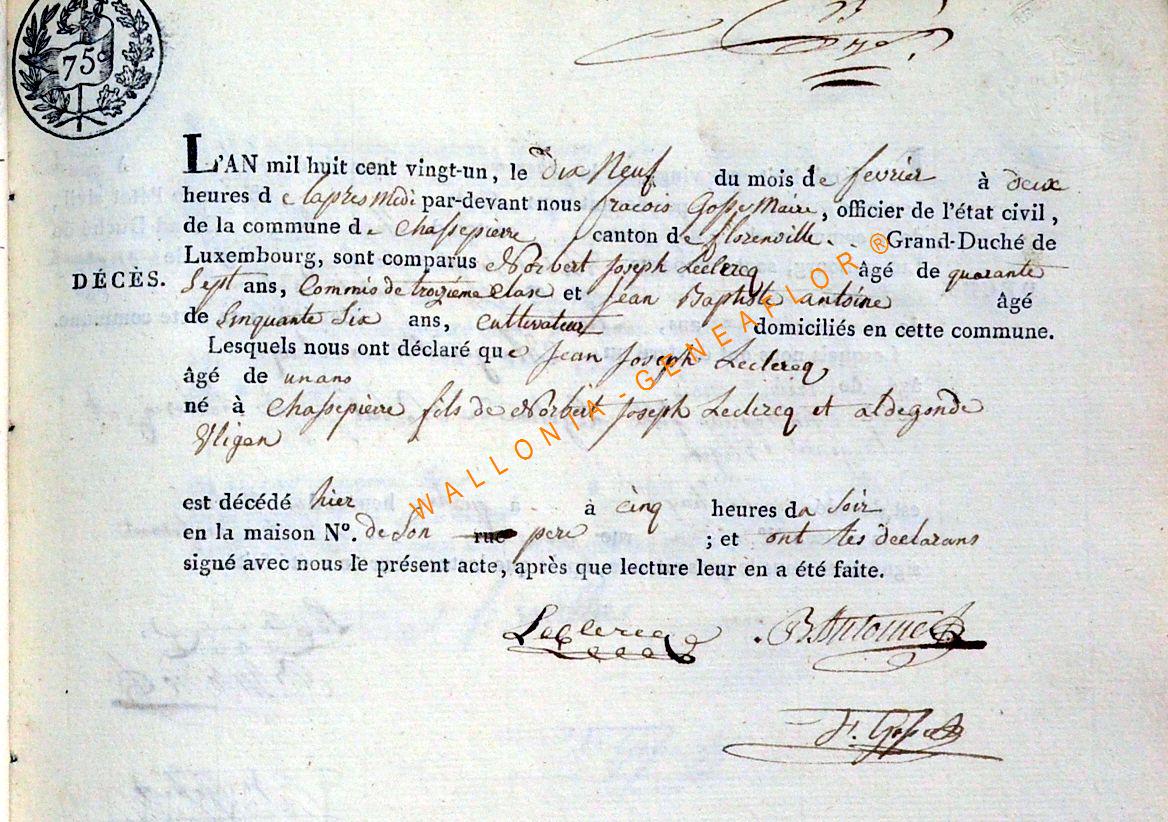 75c
L'AN mil huit cent vingt-un, le dix Neuf du mois de fevrier à deux
heures d e lapres Midi par-devant nous fracois Gosse Maire, officier de l'état civil,
de la commune de Chassepierre canton de florenville Grand-Duché de
Luxembourg, sont comparus Norbert Joseph Leclercq âgé de quarante
DÉCÈS. Sept ans, Commis de troizieme Clase et Jean Baptiste antoine âgé
de Sinquante Six ans, Cultivateur domiciliés en cette commune.
Lesquels nous ont déclaré que Jean Joseph Leclercq
âgé de un ans
né à Chassepierre fils de Norbert Joseph Leclercq et aldegonde
est décédé hier à cinq heures du Soir
en la maison N°. de Son rue pere ; et ont les declarans
signé avec nous le présent acte, après que lecture leur en a été faite.
Leclercq B. Antoine
F. Gosse
WALLONIA - GENEAFLOR ®